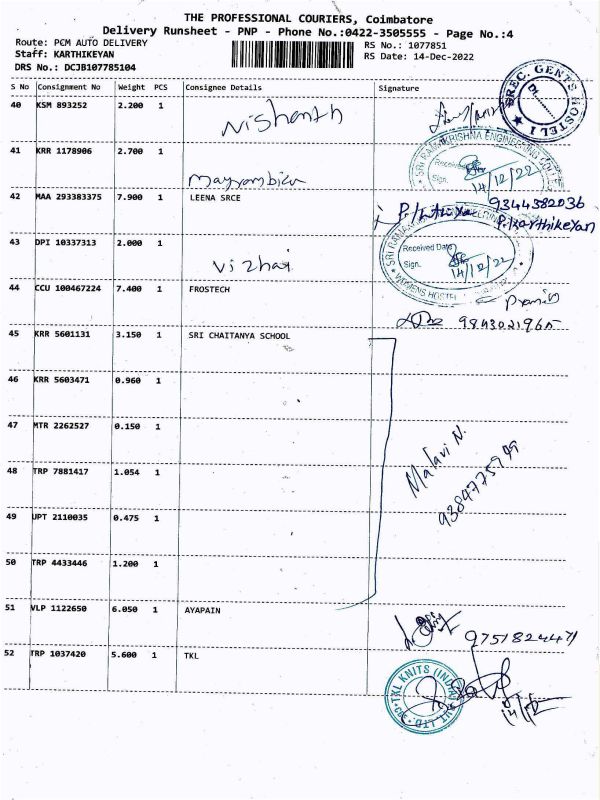 THE PROFESSIONAL COURIERS, Coimbatore
Delivery Runsheet - PNP - Phone No.:0422-3505555 - Page No.:4
Route: PCM AUTO DELIVERY
RS No.: 1077851
Staff: KARTHIKEYAN
RS Date: 14-Dec-2022
DRS No.: DCJB107785104
S No Consignment No Weight PCS Consignee Details Signature
40 KSM 893252 2.200 1 Nishanth
SREC. GENTS HOSTEL I
41 KRR 1178906 2.700 1
SRI RAMAKRISHNA ENGINEERING
Received
Sign. 14/12/22
42 MAA 293383375 7.900 1 LEENA SRCE
9344382036
P.Karthikeyan
43 DPI 10337313 2.000 1
Received Date
Sign. 14/12/22
WOMENS HOSTEL
44 CCU 100467224 7.400 1 FROSTECH
45 KRR 5601131 3.150 1 SRI CHAITANYA SCHOOL
46 KRR 5603471 0.960 1
47 MTR 2262527 0.150 1
Malavi N.
48 TRP 7881417 1.054 1
49 UPT 2110035 0.475 1
50 TRP 4433446 1.200 1
51 VLP 1122650 6.050 1 AYAPAIN
9751824471
52 TRP 1037420 5.600 1 TKL
TXL KNITS (INDIA) PVT LTD